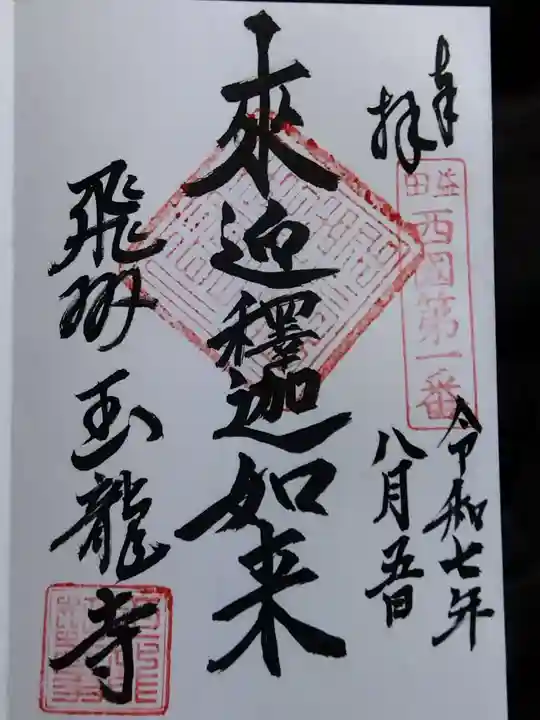 奉拝
益田
西國第一番
令和七年
八月五日
來迎釋迦如来
飛州玉龍寺